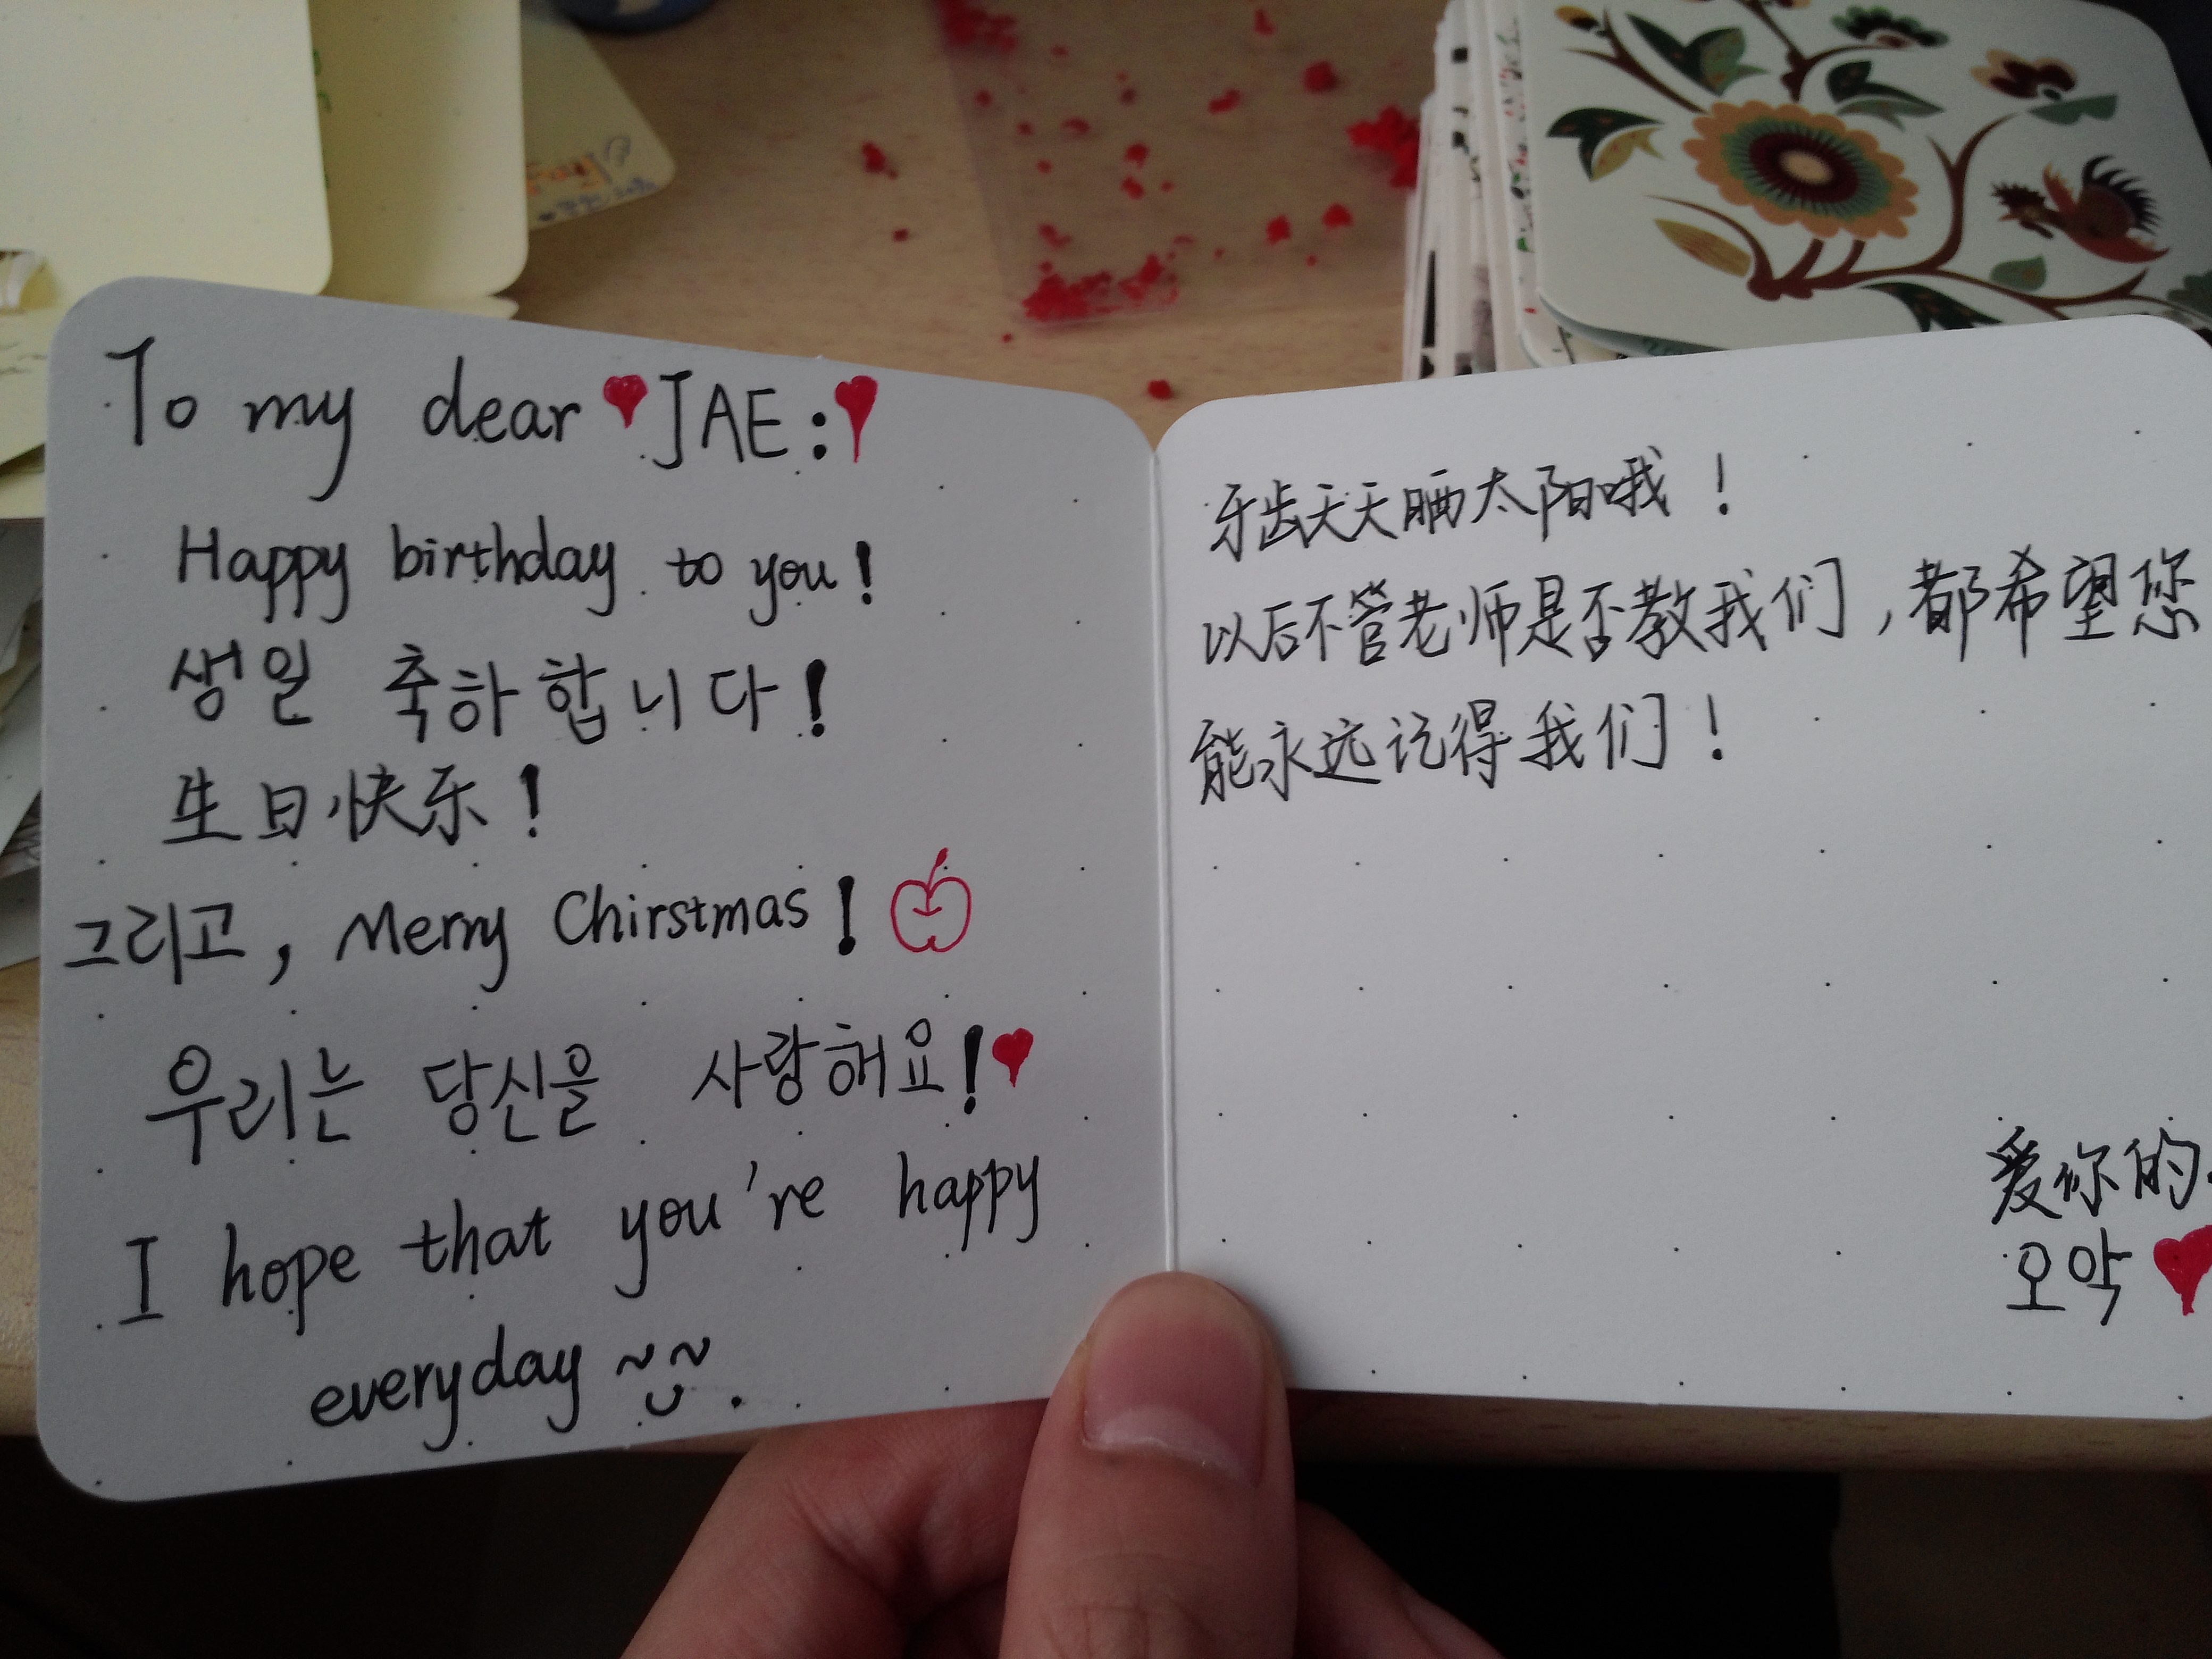 To my dear JAE:
Happy birthday to you!
생일 축하합니다!
生日快乐!
그리고, Merry Chirstmas!
우리는 당신을 사랑해요!
I hope that you're happy
everyday ~~.
牙齿天天晒太阳哦!
以后不管老师是否教我们,都希望您
能永远记得我们!
爱你的
오악